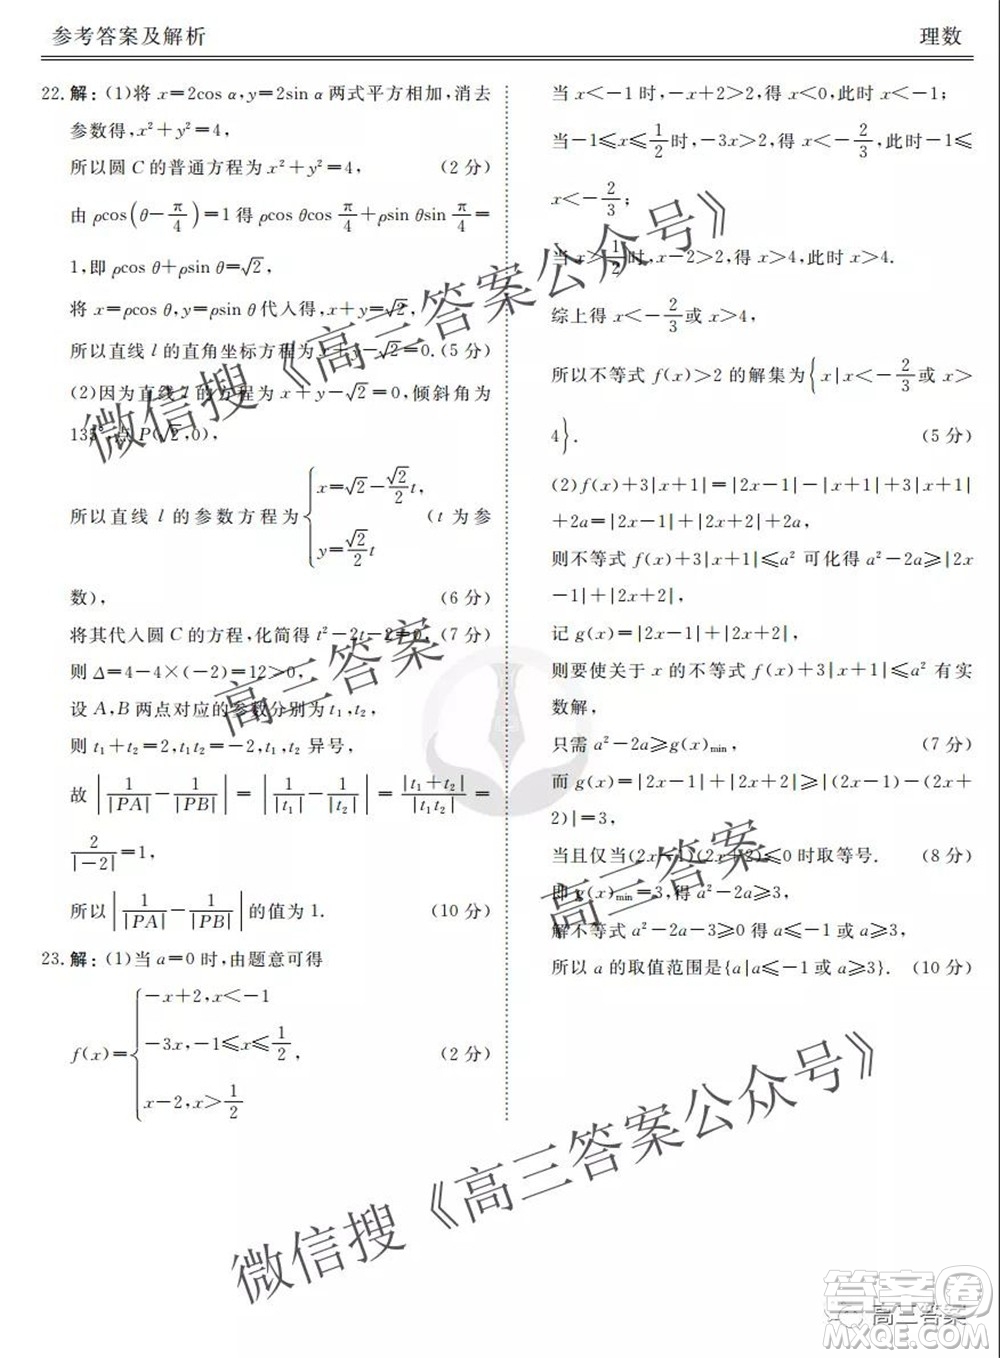 参考答案及解析
理数
22. 解：(1)将 x=2cos α,y=2sin α 两式平方相加,消去
参数得,x²+y²=4,
所以圆 C 的普通方程为 x²+y²=4, (2 分)
由 ρcos(θ-π/4)=1 得 ρcos θcos π/4+ρsin θsin π/4=
1,即 ρcos θ+ρsin θ=√2,
将 x=ρcos θ,y=ρsin θ 代入得,x+y=√2,
所以直线 l 的直角坐标方程为 x+y-√2=0.(5 分)
(2)因为直线 l 的方程为 x+y-√2=0,倾斜角为
135°,点 P(√2,0),
所以直线 l 的参数方程为{x=√2-√2/2 t, y=√2/2 t (t 为参
数), (6 分)
将其代入圆 C 的方程,化简得 t²-2t-2=0, (7 分)
则 Δ=4-4×(-2)=12>0,
设 A,B 两点对应的参数分别为 t₁,t₂,
则 t₁+t₂=2,t₁t₂=-2,t₁,t₂ 异号,
故 |1/|PA|-1/|PB||=|1/|t₁|-1/|t₂||=|t₁+t₂|/|t₁t₂|=
2/|-2|=1,
所以|1/|PA|-1/|PB||的值为 1. (10 分)
23. 解：(1)当 a=0 时,由题意可得
f(x)={-x+2,x<-1
-3x,-1≤x≤1/2, (2 分)
x-2,x>1/2
当 x<-1 时,-x+2>2,得 x<0,此时 x<-1;
当-1≤x≤1/2时,-3x>2,得 x<-2/3,此时-1≤
x<-2/3;
当 x>1/2时,x-2>2,得 x>4,此时 x>4.
综上得 x<-2/3或 x>4,
所以不等式 f(x)>2 的解集为{x|x<-2/3或 x>
4}. (5 分)
(2)f(x)+3|x+1|=|2x-1|-|x+1|+3|x+1|
+2a=|2x-1|+|2x+2|+2a,
则不等式 f(x)+3|x+1|≤a² 可化得 a²-2a≥|2x
-1|+|2x+2|,
记 g(x)=|2x-1|+|2x+2|,
则要使关于 x 的不等式 f(x)+3|x+1|≤a² 有实
数解,
只需 a²-2a≥g(x)min, (7 分)
而 g(x)=|2x-1|+|2x+2|≥|(2x-1)-(2x+
2)|=3,
当且仅当(2x-1)(2x+2)≤0 时取等号. (8 分)
即 g(x)min=3,得 a²-2a≥3,
解不等式 a²-2a-3≥0 得 a≤-1 或 a≥3,
所以 a 的取值范围是{a|a≤-1 或 a≥3}. (10 分)
微信搜《高三答案公众号》
高三答案
高三答案
微信搜《高三答案公众号》
答案圈
高三答案
MXQE.COM